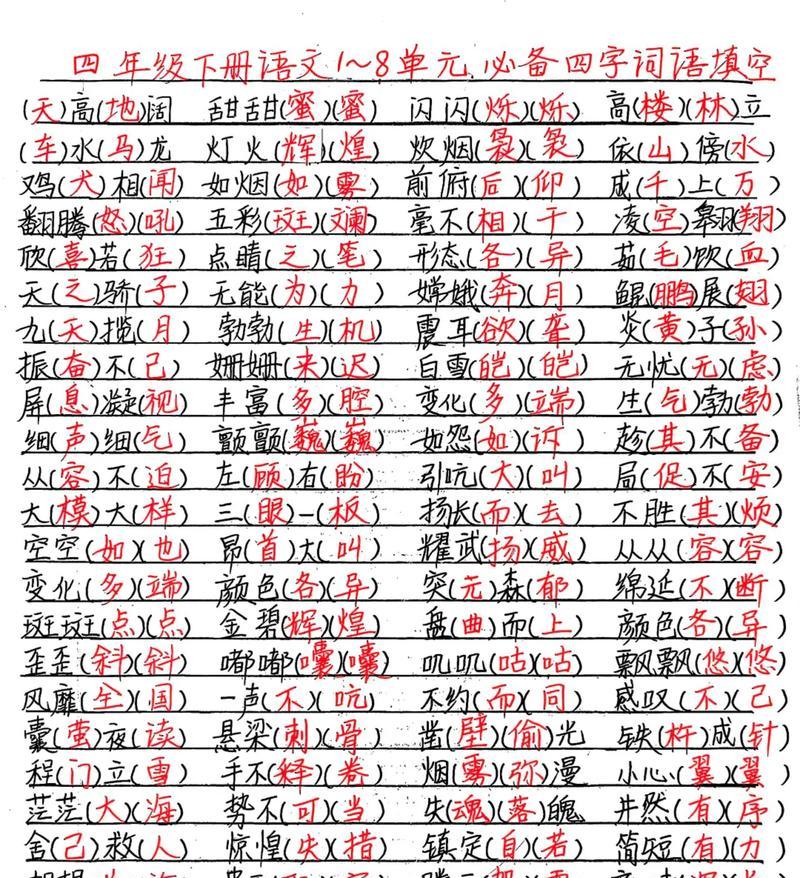 四年级下册语文1~8单元必备四字词语填空
(天)高(地)阔 甜甜(蜜)(蜜) 闪闪(烁)(烁) 高(楼)(林)立
(车)水(马)龙 灯火(辉)(煌) 炊烟(袅)(袅) 依(山)傍(水)
鸡(犬)相(闻) 如烟(如)(雾) 前俯(后)(仰) 成(千)上(万)
翻腾(怒)(吼) 五彩(斑)(斓) 毫不(相)(干) 凌(空)翱(翔)
欣(喜)若(狂) 点睛(之)(笔) 形态(各)(异) 茹(毛)饮(血)
天(之)骄(子) 无能(为)(力) 嫦娥(奔)(月) 鲲(鹏)展(翅)
九(天)揽(月) 勃勃(生)(机) 震耳(欲)(聋) 炎(黄)子(孙)
振(奋)不(己) 姗姗(来)(迟) 白雪(皑)(皑) 无忧(无)(虑)
屏(息)凝(视) 丰富(多)(腔) 变化(多)(端) 生(气)勃(勃)
细(声)细(气) 颤颤(巍)(巍) 如怨(如)(诉) 趁(其)不(备)
从(容)不(迫) 左(顾)右(盼) 引吭(大)(叫) 局(促)不(安)
大(模)大(样) 三(眼)一(板) 扬长(而)(去) 不胜(其)(烦)
空空(如)(也) 昂(首)大(叫) 耀武(扬)(威) 从从(容)(容)
变化(多)(端) 颜色(各)(异) 突(元)森(郁) 绵延(不)(断)
斑斑(点)(点) 金碧(辉)(煌) 盘(曲)而(上) 颜色(各)(异)
歪歪(斜)(斜) 嘟嘟(囔)(囔) 叽叽(咕)(咕) 飘飘(悠)(悠)
风靡(全)(国) 一声(不)(吭) 不约(而)(同) 感叹(不)(己)
囊(萤)夜(读) 悬梁(刺)(骨) 凿(壁)(偷)光 铁(杵)成(针)
程(门)立(雪) 手不(释)(卷) 烟(雾)(弥)漫 小心(翼)(翼)
茫茫(大)(海) 势不(可)(当) 失(魂)(落)魄 井然(有)(序)
舍(己)救(人) 惊惶(失)(措) 镇定(自)(若) 简短(有)(力)